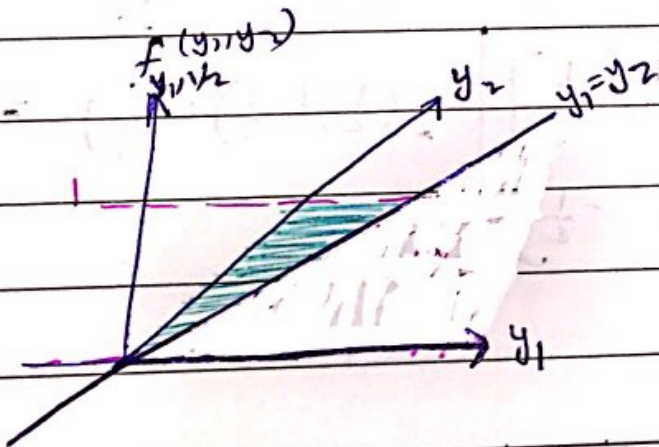 f (y1, y2)
y1, y2
y2
y1=y2
1
y1